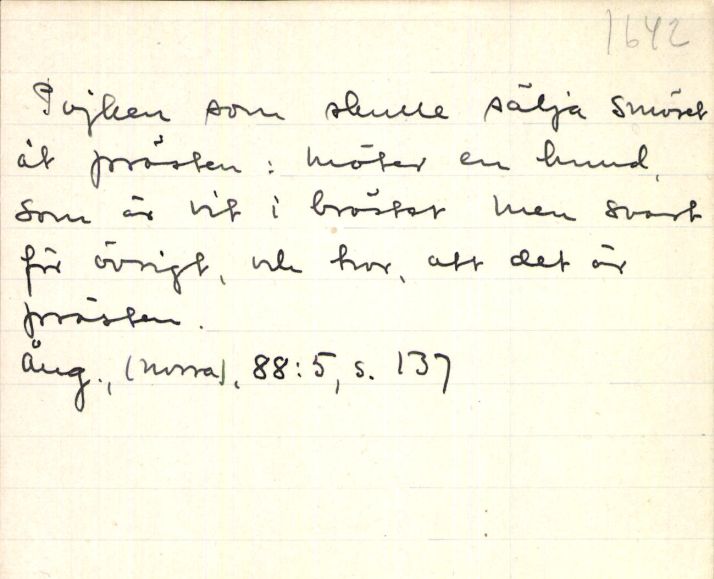 1642
Pojken som skulle sälja smöret
åt prästen : möter en hund,
som är vit i bröstet men svart
för övrigt, och tror, att det är
prästen.
Ång., (norra), 88:5, s. 137